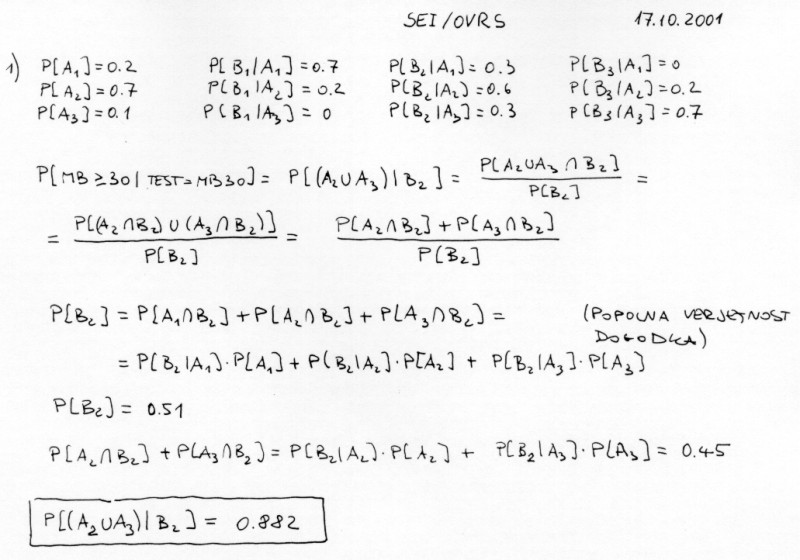 SEI/OVRS 17.10.2001
1) P[A₁]=0.2 P[B₁|A₁]=0.7 P[B₂|A₁]=0.3 P[B₃|A₁]=0
P[A₂]=0.7 P[B₁|A₂]=0.2 P[B₂|A₂]=0.6 P[B₃|A₂]=0.2
P[A₃]=0.1 P[B₁|A₃]=0 P[B₂|A₃]=0.3 P[B₃|A₃]=0.7
P[MB≥30|TEST=MB30]= P[(A₂∪A₃)|B₂] = P[A₂∪A₃∩B₂] / P[B₂] =
= P[(A₂∩B₂)∪(A₃∩B₂)] / P[B₂] = P[A₂∩B₂]+P[A₃∩B₂] / P[B₂]
P[B₂] = P[A₁∩B₂]+P[A₂∩B₂]+P[A₃∩B₂] = (POPOLNA VERJETNOST
DOGODKA)
= P[B₂|A₁]·P[A₁]+P[B₂|A₂]·P[A₂] + P[B₂|A₃]·P[A₃]
P[B₂] = 0.51
P[A₂∩B₂] + P[A₃∩B₂] = P[B₂|A₂]·P[A₂] + P[B₂|A₃]·P[A₃] = 0.45
P[(A₂∪A₃)|B₂] = 0.882